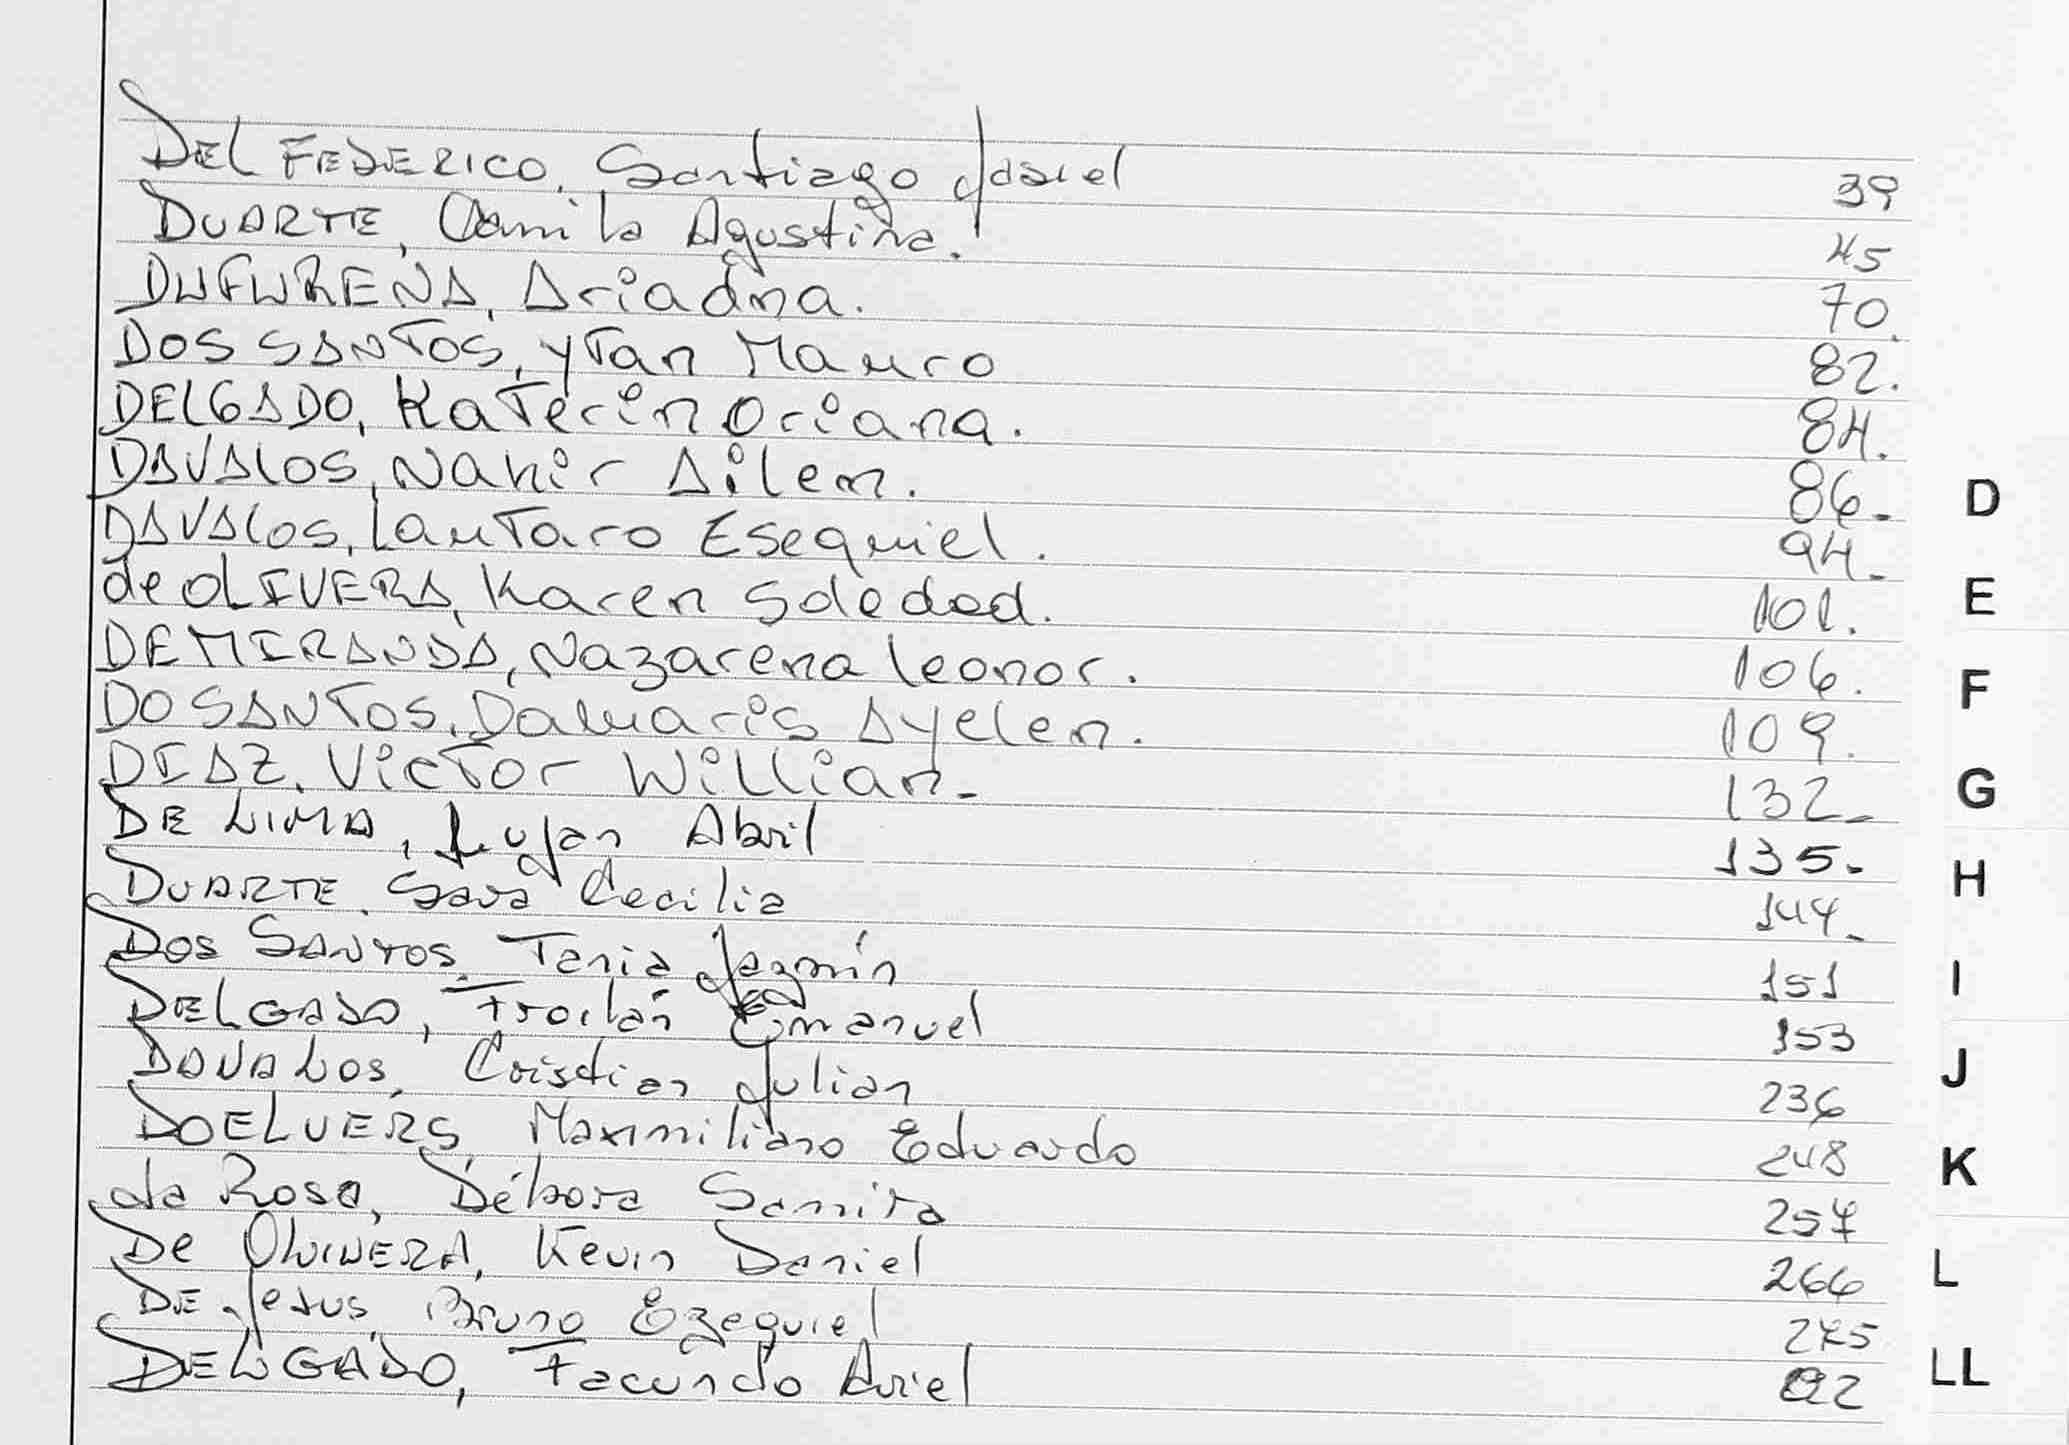 DEL FEDERICO, Santiago Josiel 39
DUARTE, Camila Agustina. 45
DUFURENA, Ariadna. 70.
DOS SANTOS, ytan Mauro 82.
DELGADO, Katerin Oriana. 84.
DAVALOS, Nahir Ailem. 86.
DAVALOS, Lautaro Esequiel. 94.
de OLIVERA, Karen Soledad. 101.
DE MIRANDA, Nazarena Leonor. 106.
DO SANTOS, Damaris Ayelen. 109.
DIAZ, Victor Willian. 132.
DE LIMA, Lujan Abril 135.
DUARTE, Sara Cecilia 144.
DOS SANTOS, Tania Jazmín 151
DELGADO, Froilán Emanuel 153
DAVALOS, Cristian Julian 236
DOELVERS, Maximiliano Eduardo 248
da Rosa, Débora Samira 257
De OLIVERA, Kevin Daniel 266
DE Jesus, Bruno Ezequiel 275
DELGADO, Facundo Ariel
D
E
F
G
H
I
J
K
L
LL